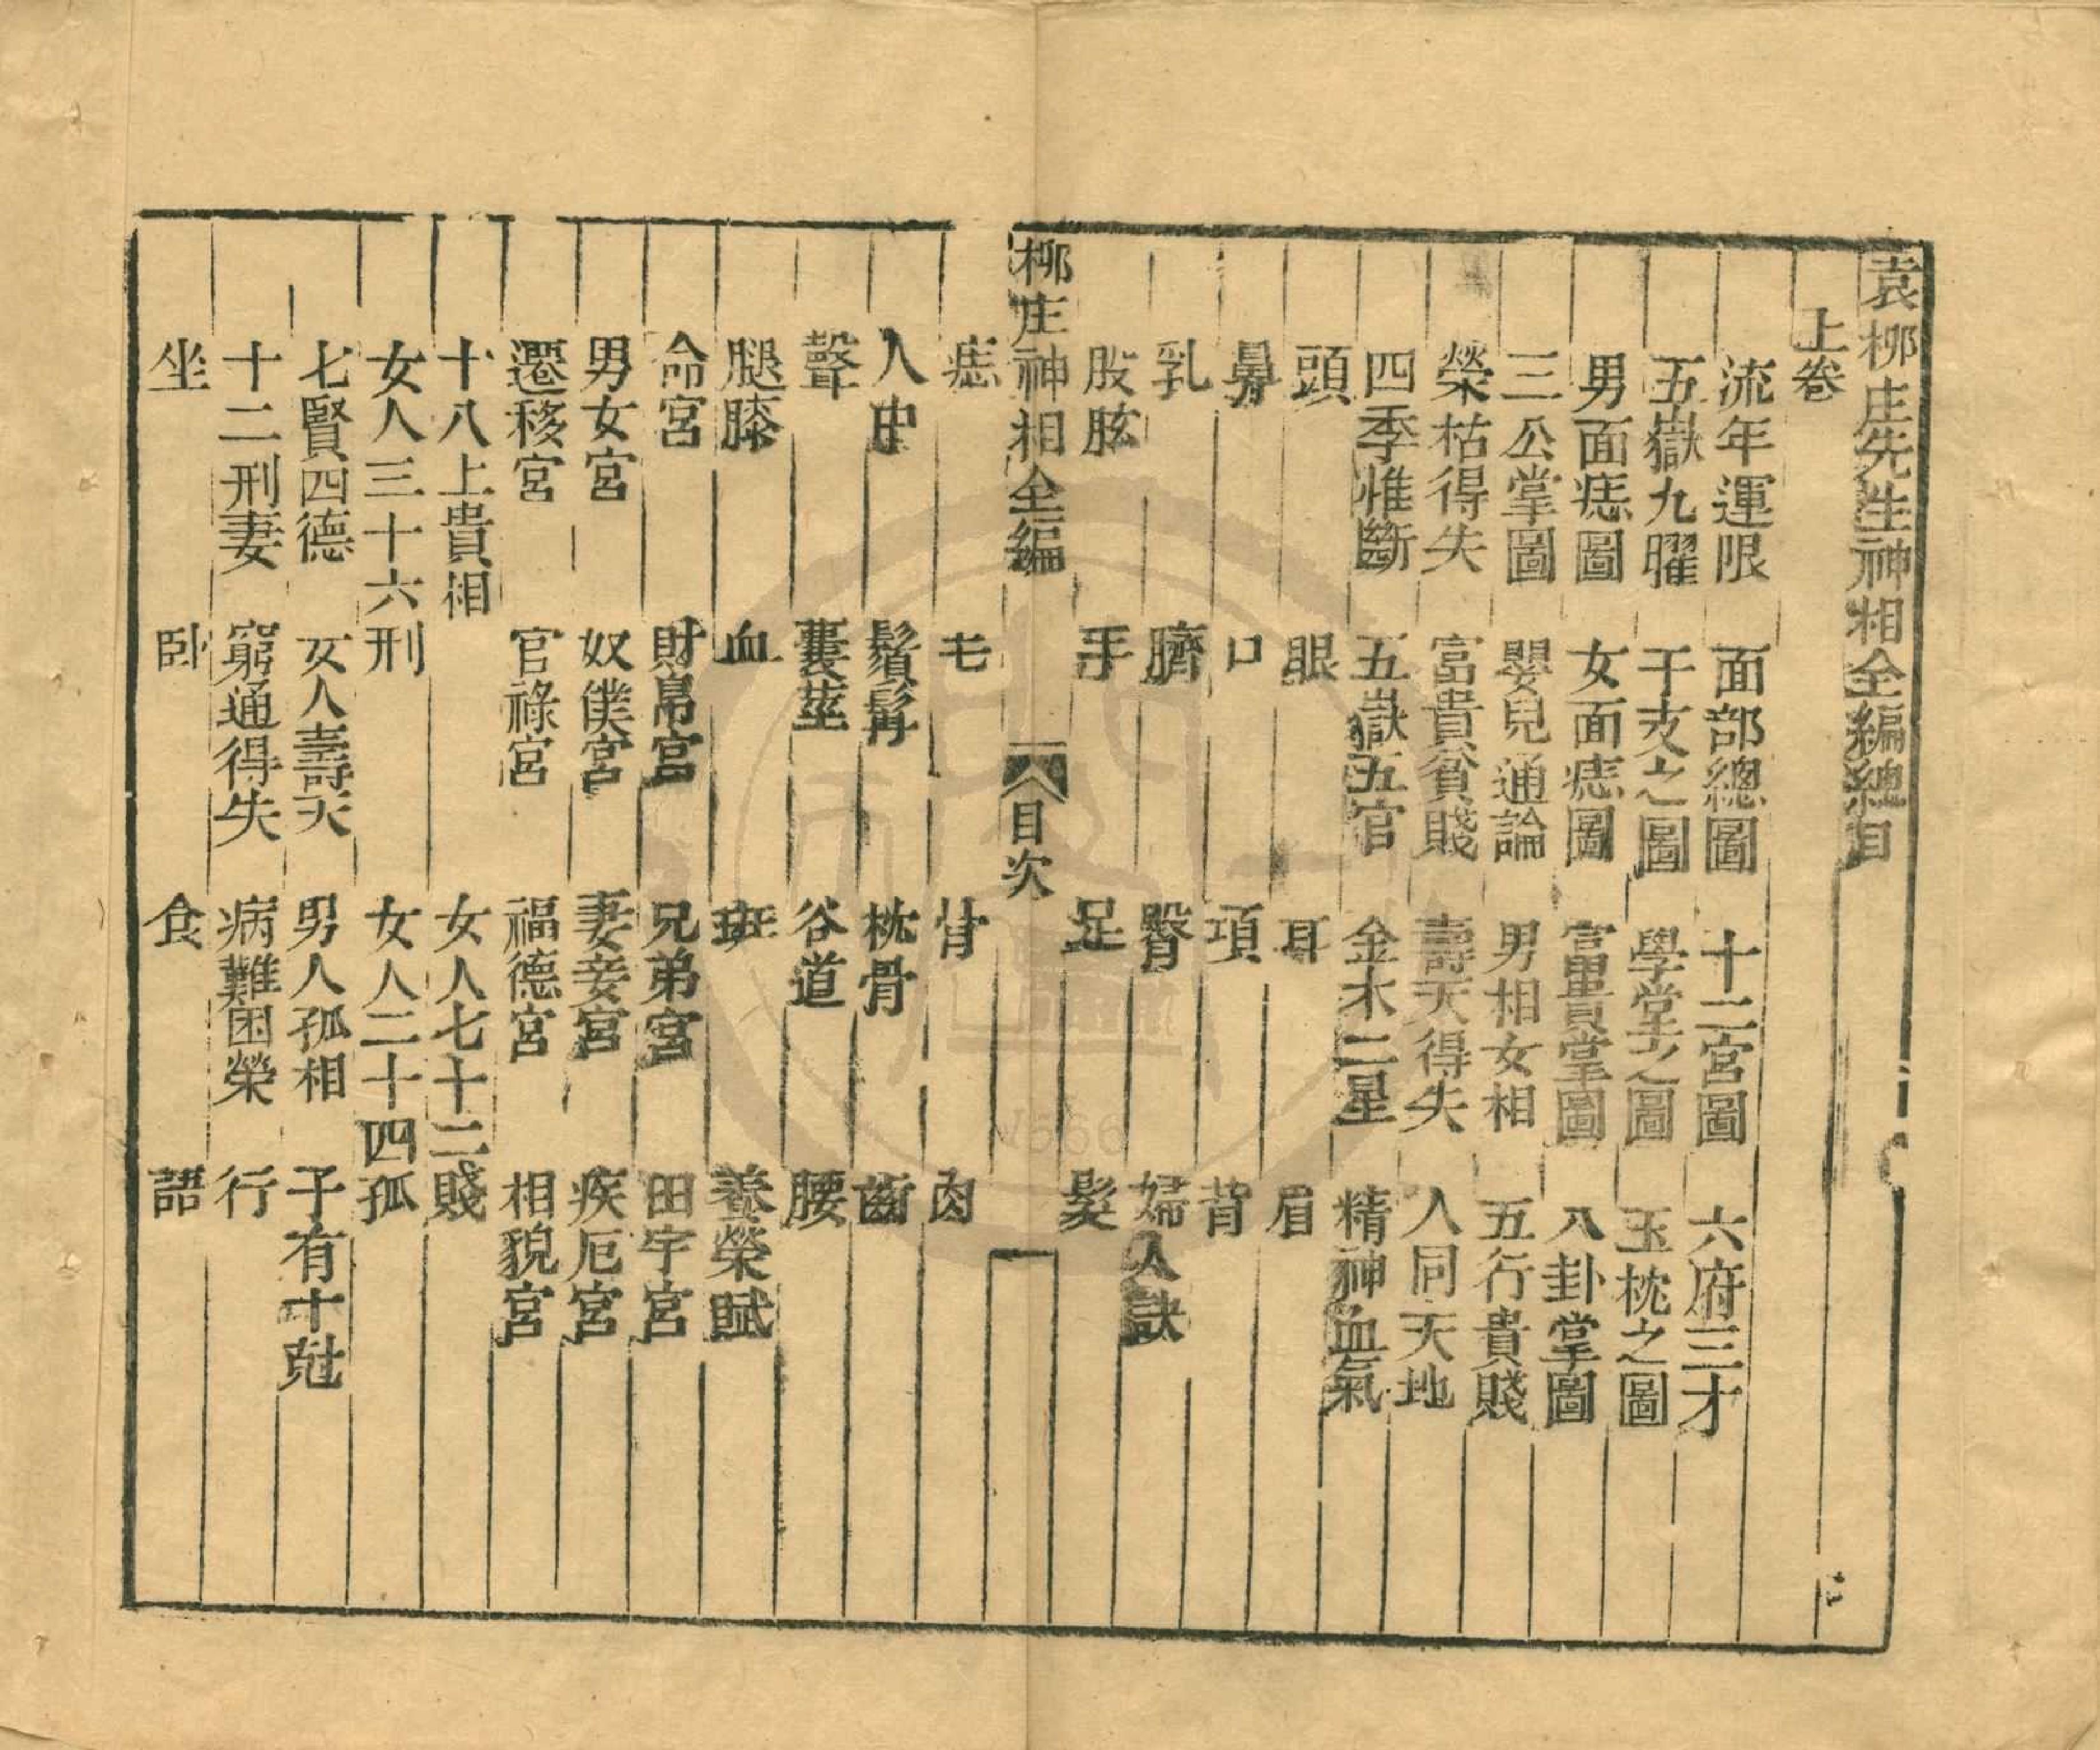 袁柳庄先生神相全編總目
上卷
流年運限 面部總圖 十二宮圖 六府三才
五嶽九曜 干支之圖 學堂之圖 玉枕之圖
男面痣圖 女面痣圖 富貴掌圖 八卦掌圖
三公掌圖 嬰兒通論 男相女相 五行貴賤
榮枯得失 富貴貧賤 壽夭得失 人同天地
四季惟斷 五嶽五官 金木二星 精神血氣
頭 眼 耳 眉
鼻 口 項 背
乳 臍 臀 婦人訣
股肱 手 足 髮
柳庄神相全編 目次
痣 毛 骨 肉
人中 鬚髯 枕骨 齒
聲 囊莖 谷道 腰
腿膝 血 斑 養榮賦
命宮 財帛宮 兄弟宮 田宇宮
男女宮 奴僕宮 妻妾宮 疾厄宮
遷移宮 官祿宮 福德宮 相貌宮
十八上貴相 女人七十二賤
女人三十六刑 女人二十四孤
七賢四德 女人壽夭 男人孤相 子有十尅
十二刑妻 窮通得失 病難困榮 行
坐 臥 食 語